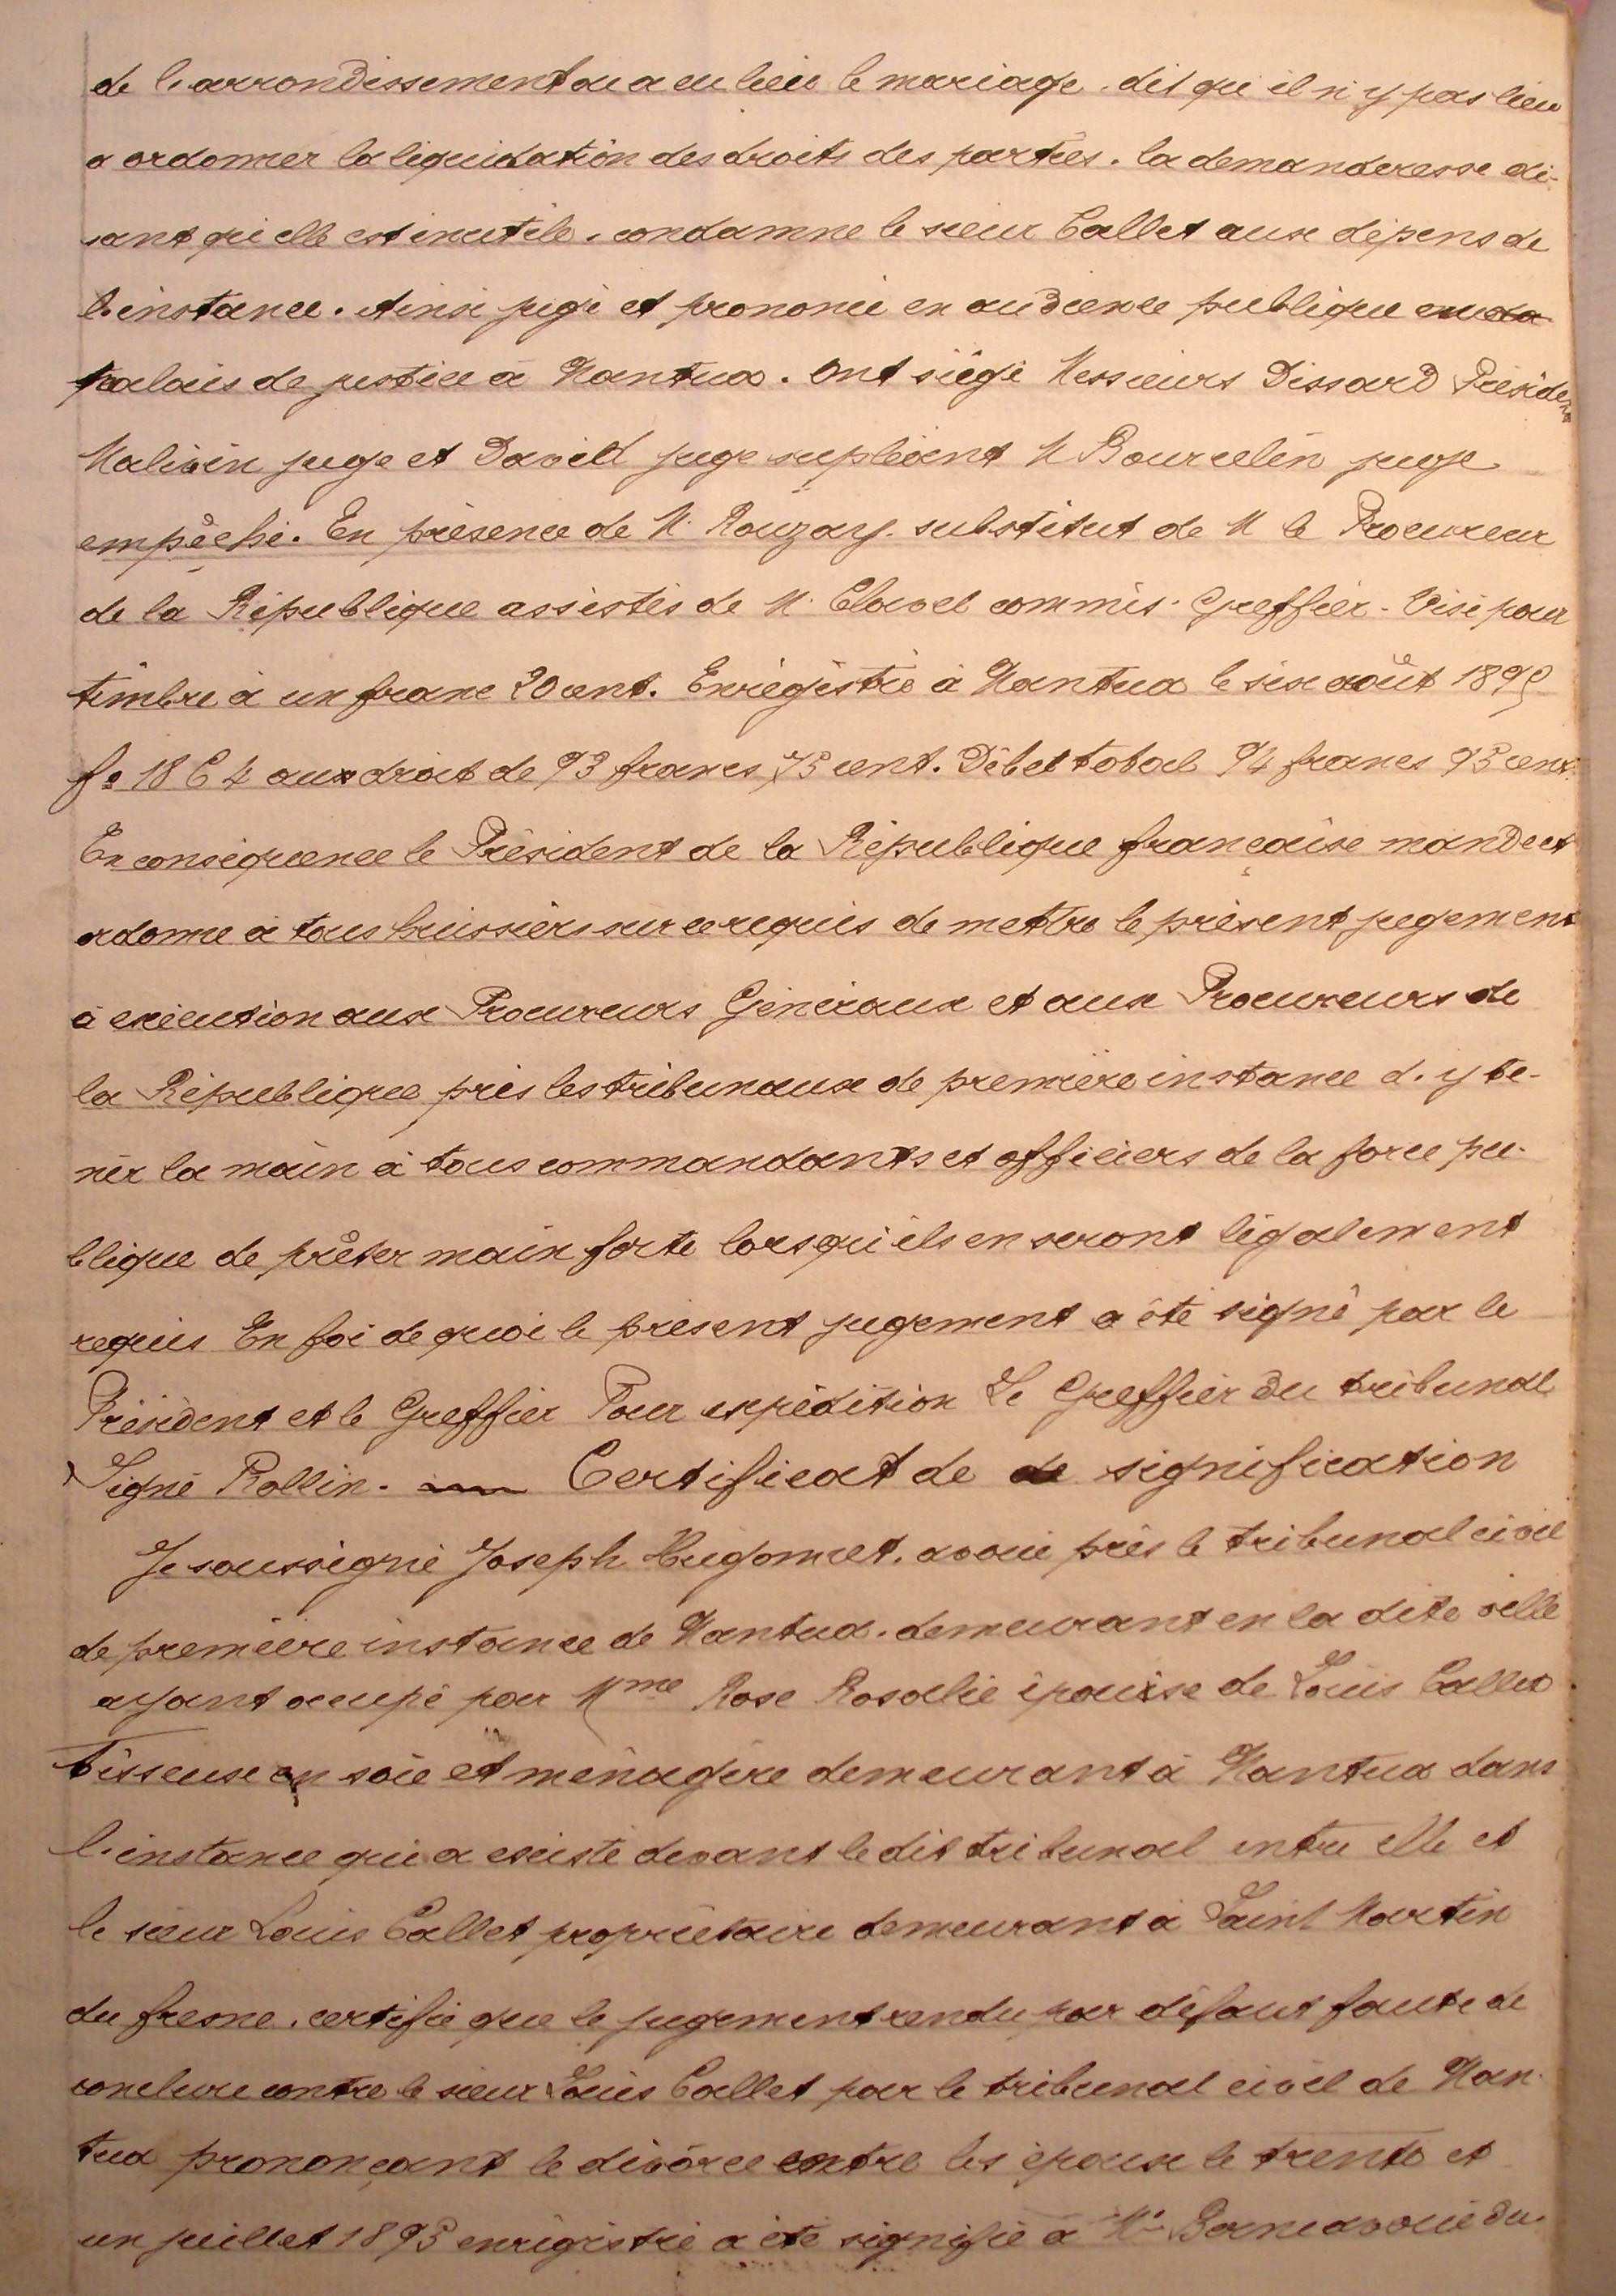 de l'arrondissement ou a eu lieu le mariage. dit qu'il n'y pas lieu
a ordonner la liquidation des droits des parties. la demanderesse di-
sant qu'elle est inutile. condamne le sieur Callet aux dépens de
l'instance. Ainsi jugé et prononcé en audience publique
palais de justice à Nantua. Ont siégé Messieurs Dissard Président
Malivin juge et David juge supléant M Bourcelin juge
empêché. En présence de M. Rouzay. substitut de M le Procureur
de la République assistés de M. Clavel commis. Greffier - Visé pour
timbre à un franc 20 cent. Enrégistré à Nantua le six août 1895
f° 18 C 4 aux droit de 93 francs 75 cent. Débet total 94 francs 95 cent.
En conséquence le Président de la République française mande et
ordonne à tous huissiers sur ce requis de mettre le présent jugement
à exécution aux Procureurs Généraux et aux Procureurs de
la République près les tribunaux de première instance d'y te-
nir la main à tous commandants et officiers de la force pu-
blique de prêter main forte lorsqu'ils en seront légalement
requis En foi de quoi le présent jugement a été signé par le
Président et le Greffier Pour expédition Le Greffier du tribunal
Signé Rollin. — Certificat de de signification
Je soussigné Joseph Hugonnet. avoué près le tribunal civil
de première instance de Nantua. demeurant en la dite ville
ayant occupé pour Mme Rose Rosalie épouse de Louis Callet
tisseuse en soie et ménagère demeurant à Nantua dans
l'instance qui a existé devant le dit tribunal entre elle et
le sieur Louis Callet propriétaire demeurant à Saint Martin
du fresne. certifie que le jugement rendu par défaut faute de
conclure contre le sieur Louis Callet par le tribunal civil de Nan-
tua prononçant le divorce entre les époux le trente et
un juillet 1895 enrégistré a été signifié à Me Borne avoué du